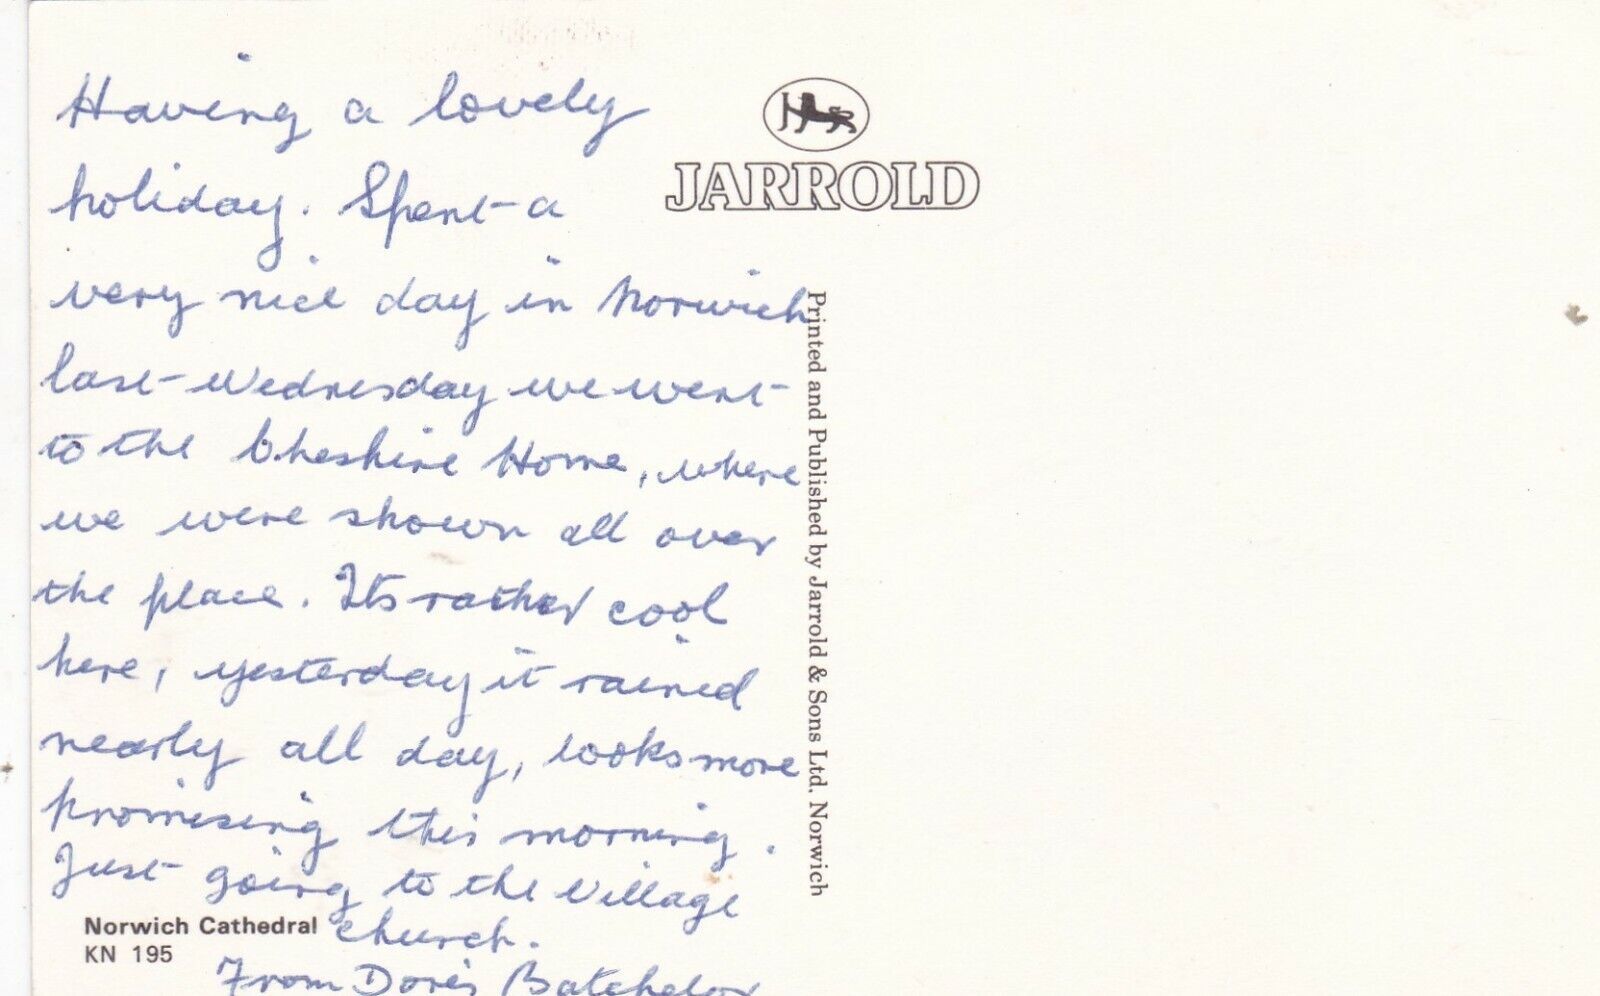 Having a lovely
holiday. Spent a
very nice day in Norwich
last Wednesday we went
to the Cheshire Home, where
we were shown all over
the place. Its rather cool
here, yesterday it rained
nearly all day, looks more
promising this morning.
Just going to the Village
church.
From Doris Batchelor
Norwich Cathedral
KN 195
JARROLD
Printed and Published by Jarrold & Sons Ltd. Norwich